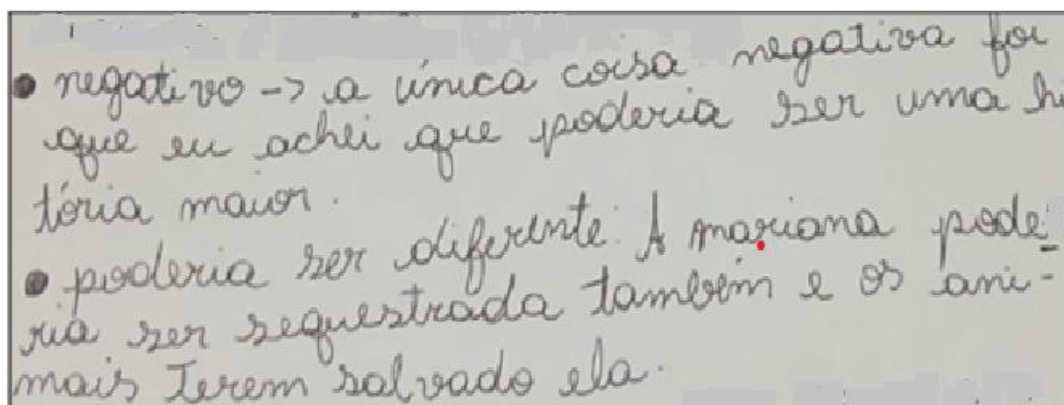 • negativo -> a única coisa negativa foi
que eu achei que poderia ser uma hi
tória maior.
• poderia ser diferente. A mariana pode
ria ser sequestrada também e os ani-
mais Terem salvado ela.